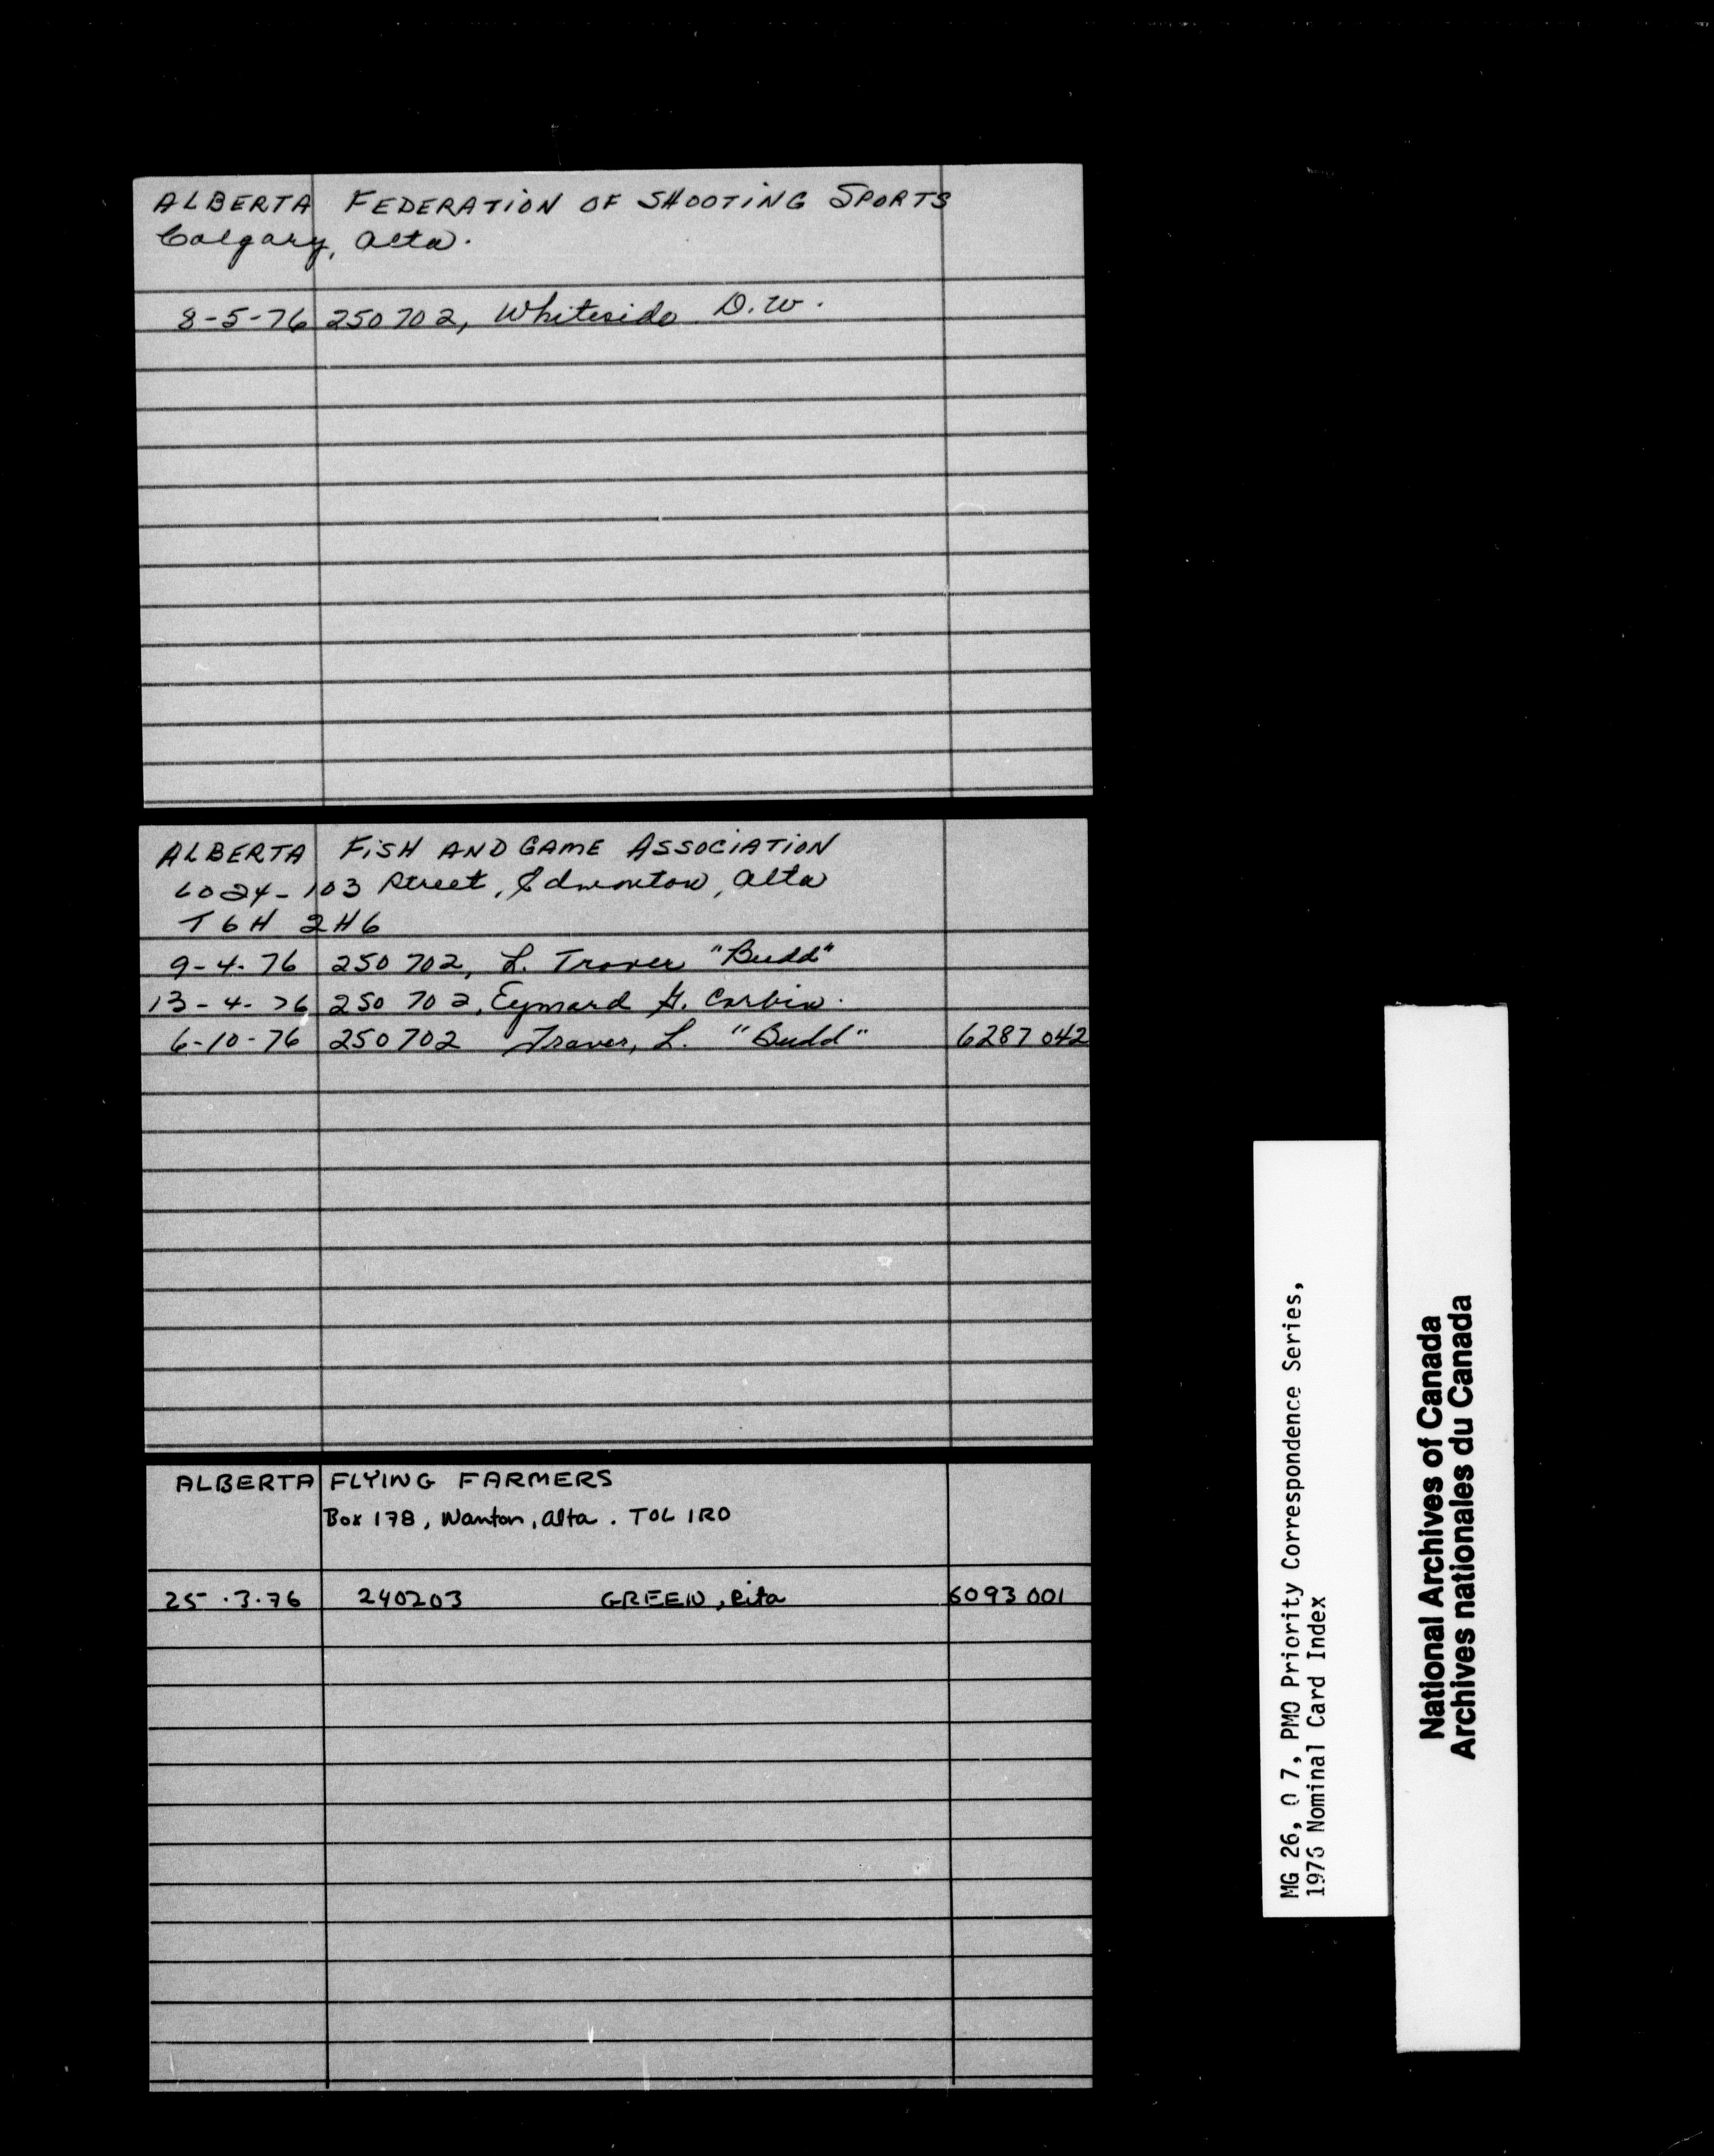 ALBERTA FEDERATION OF SHOOTING SPORTS
Calgary, Alta.
8-5-76 250702, Whiteside D.W.
ALBERTA FISH AND GAME ASSOCIATION
6024-103 Street, Edmonton, Alta
T6H 2H6
9-4-76 250 702, L. Traver "Budd"
13-4-76 250 702, Eymard G. Corbin.
6-10-76 250702 Traver, L. "Budd" 6287 042
ALBERTA FLYING FARMERS
Box 178, Nanton, Alta. TOL 1RO
25.3.76 240203 GREEN, Rita 6093 001
MG 26, O 7, PMO Priority Correspondence Series,
1976 Nominal Card Index
National Archives of Canada
Archives nationales du Canada